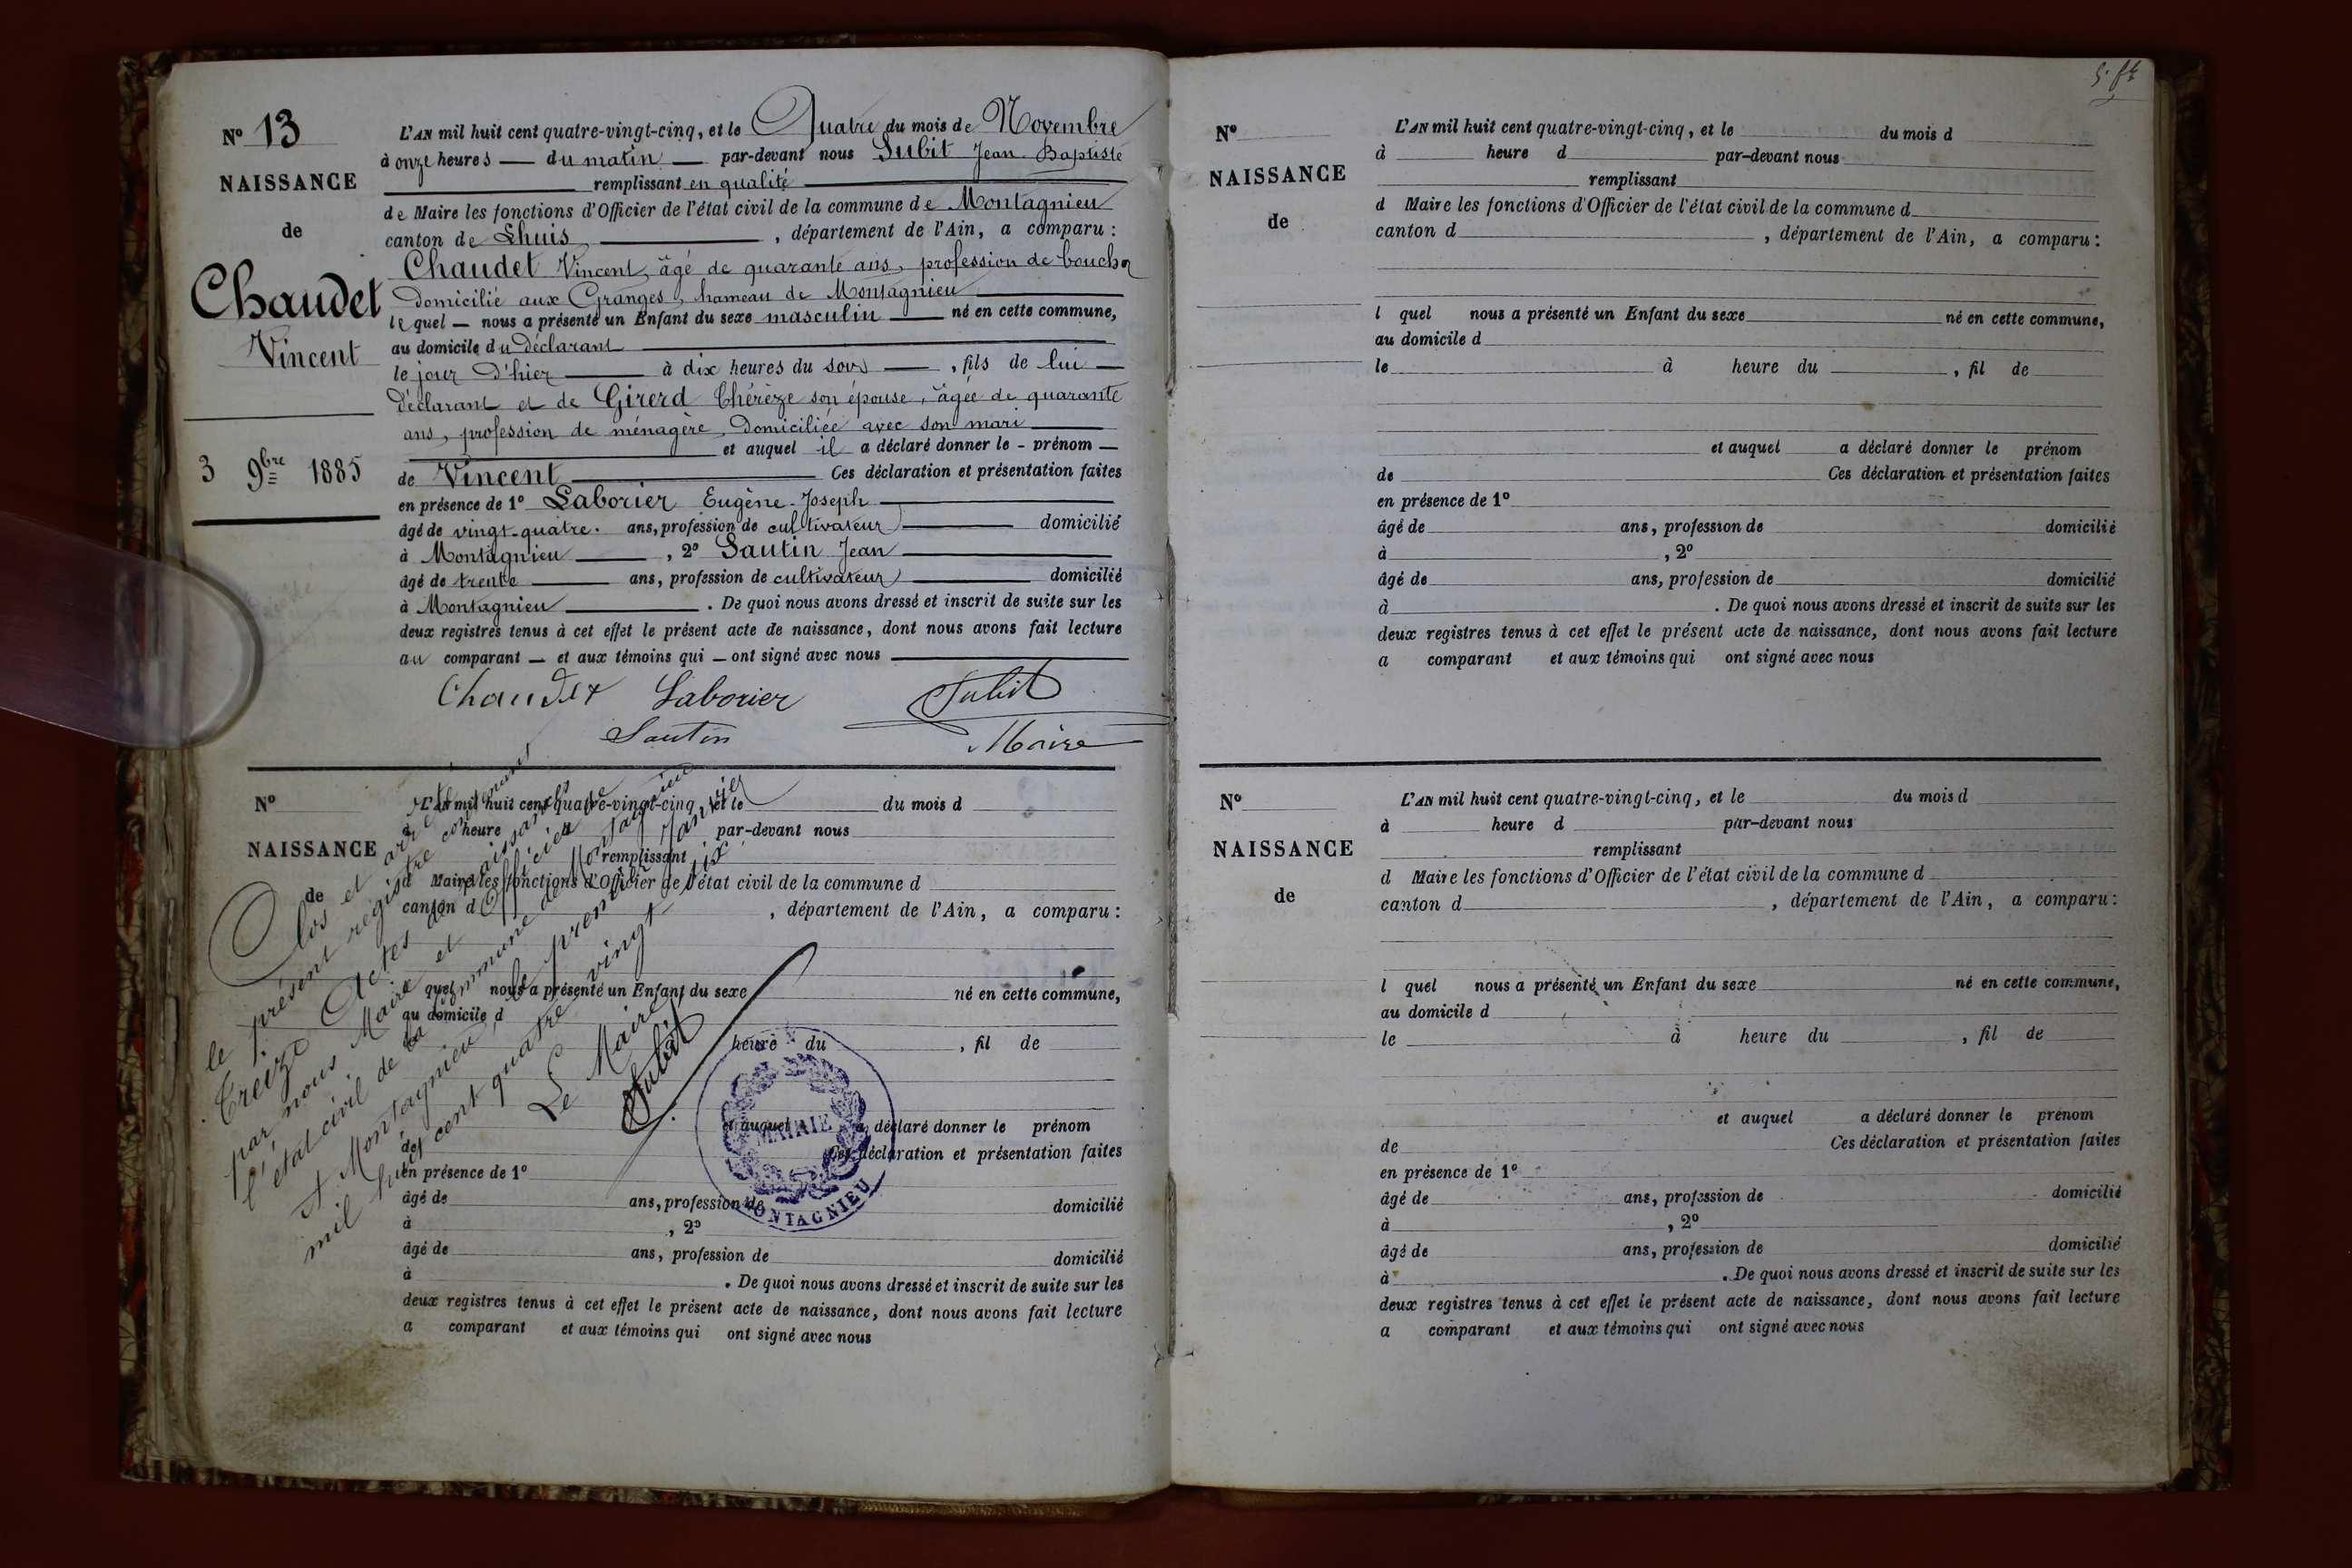 Nº 13
NAISSANCE
de
Chaudet
Vincent
3 9bre 1885
L'AN mil huit cent quatre-vingt-cinq, et le Quatre du mois de Novembre
à onze heures — du matin — par-devant nous Subit Jean Baptiste
remplissant en qualité
de Maire les fonctions d'Officier de l'état civil de la commune de Montagnieu
canton de Lhuis, département de l'Ain, a comparu :
Chaudet Vincent, âgé de quarante ans, profession de boucher
domicilié aux Granges, hameau de Montagnieu
lequel — nous a présenté un Enfant du sexe masculin — né en cette commune,
au domicile du déclarant
le jour d'hier — à dix heures du soir —, fils de lui —
déclarant et de Girerd Thérèze son épouse, âgée de quarante
ans, profession de ménagère, domiciliée avec son mari
et auquel il a déclaré donner le - prénom —
de Vincent — Ces déclaration et présentation faites
en présence de 1º Laborier Eugène-Joseph
âgé de vingt-quatre. ans, profession de cultivateur — domicilié
à Montagnieu —, 2º Sautin Jean
âgé de trente — ans, profession de cultivateur — domicilié
à Montagnieu —. De quoi nous avons dressé et inscrit de suite sur les
deux registres tenus à cet effet le présent acte de naissance, dont nous avons fait lecture
au comparant — et aux témoins qui — ont signé avec nous
Chaudet Laborier Subit
Sautin Maire
Nº
NAISSANCE
de
L'AN mil huit cent quatre-vingt-cinq, et le du mois d
à heure par-devant nous
remplissant
d Maire les fonctions d'Officier de l'état civil de la commune d
canton d , département de l'Ain, a comparu :
quel nous a présenté un Enfant du sexe né en cette commune,
au domicile d
heure du , fil de
et auquel a déclaré donner le prénom
de Ces déclaration et présentation faites
en présence de 1º
âgé de ans, profession de domicilié
à , 2º
âgé de ans, profession de domicilié
à . De quoi nous avons dressé et inscrit de suite sur les
deux registres tenus à cet effet le présent acte de naissance, dont nous avons fait lecture
a comparant et aux témoins qui ont signé avec nous
Clos et arrêté
le présent registre contenant
treize Actes de naissances
par nous Maire et Officier de
l'état civil de la commune de Montagnieu
A Montagnieu, le premier Janvier
mil huit cent quatre vingt six
Le Maire
Subit
MAIRIE
MONTAGNIEU
Nº
NAISSANCE
de
L'AN mil huit cent quatre-vingt-cinq, et le du mois d
à heure d par-devant nous
remplissant
d Maire les fonctions d'Officier de l'état civil de la commune d
canton d , département de l'Ain, a comparu :
l quel nous a présenté un Enfant du sexe né en cette commune,
au domicile d
le à heure du , fil de
et auquel a déclaré donner le prénom
de Ces déclaration et présentation faites
en présence de 1º
âgé de ans, profession de domicilié
à , 2º
âgé de ans, profession de domicilié
à . De quoi nous avons dressé et inscrit de suite sur les
deux registres tenus à cet effet le présent acte de naissance, dont nous avons fait lecture
a comparant et aux témoins qui ont signé avec nous
Nº
NAISSANCE
de
L'AN mil huit cent quatre-vingt-cinq, et le du mois d
à heure d par-devant nous
remplissant
d Maire les fonctions d'Officier de l'état civil de la commune d
canton d , département de l'Ain, a comparu :
l quel nous a présenté un Enfant du sexe né en cette commune,
au domicile d
le à heure du , fil de
et auquel a déclaré donner le prénom
de Ces déclaration et présentation faites
en présence de 1º
âgé de ans, profession de domicilié
à , 2º
âgé de ans, profession de domicilié
à . De quoi nous avons dressé et inscrit de suite sur les
deux registres tenus à cet effet le présent acte de naissance, dont nous avons fait lecture
a comparant et aux témoins qui ont signé avec nous